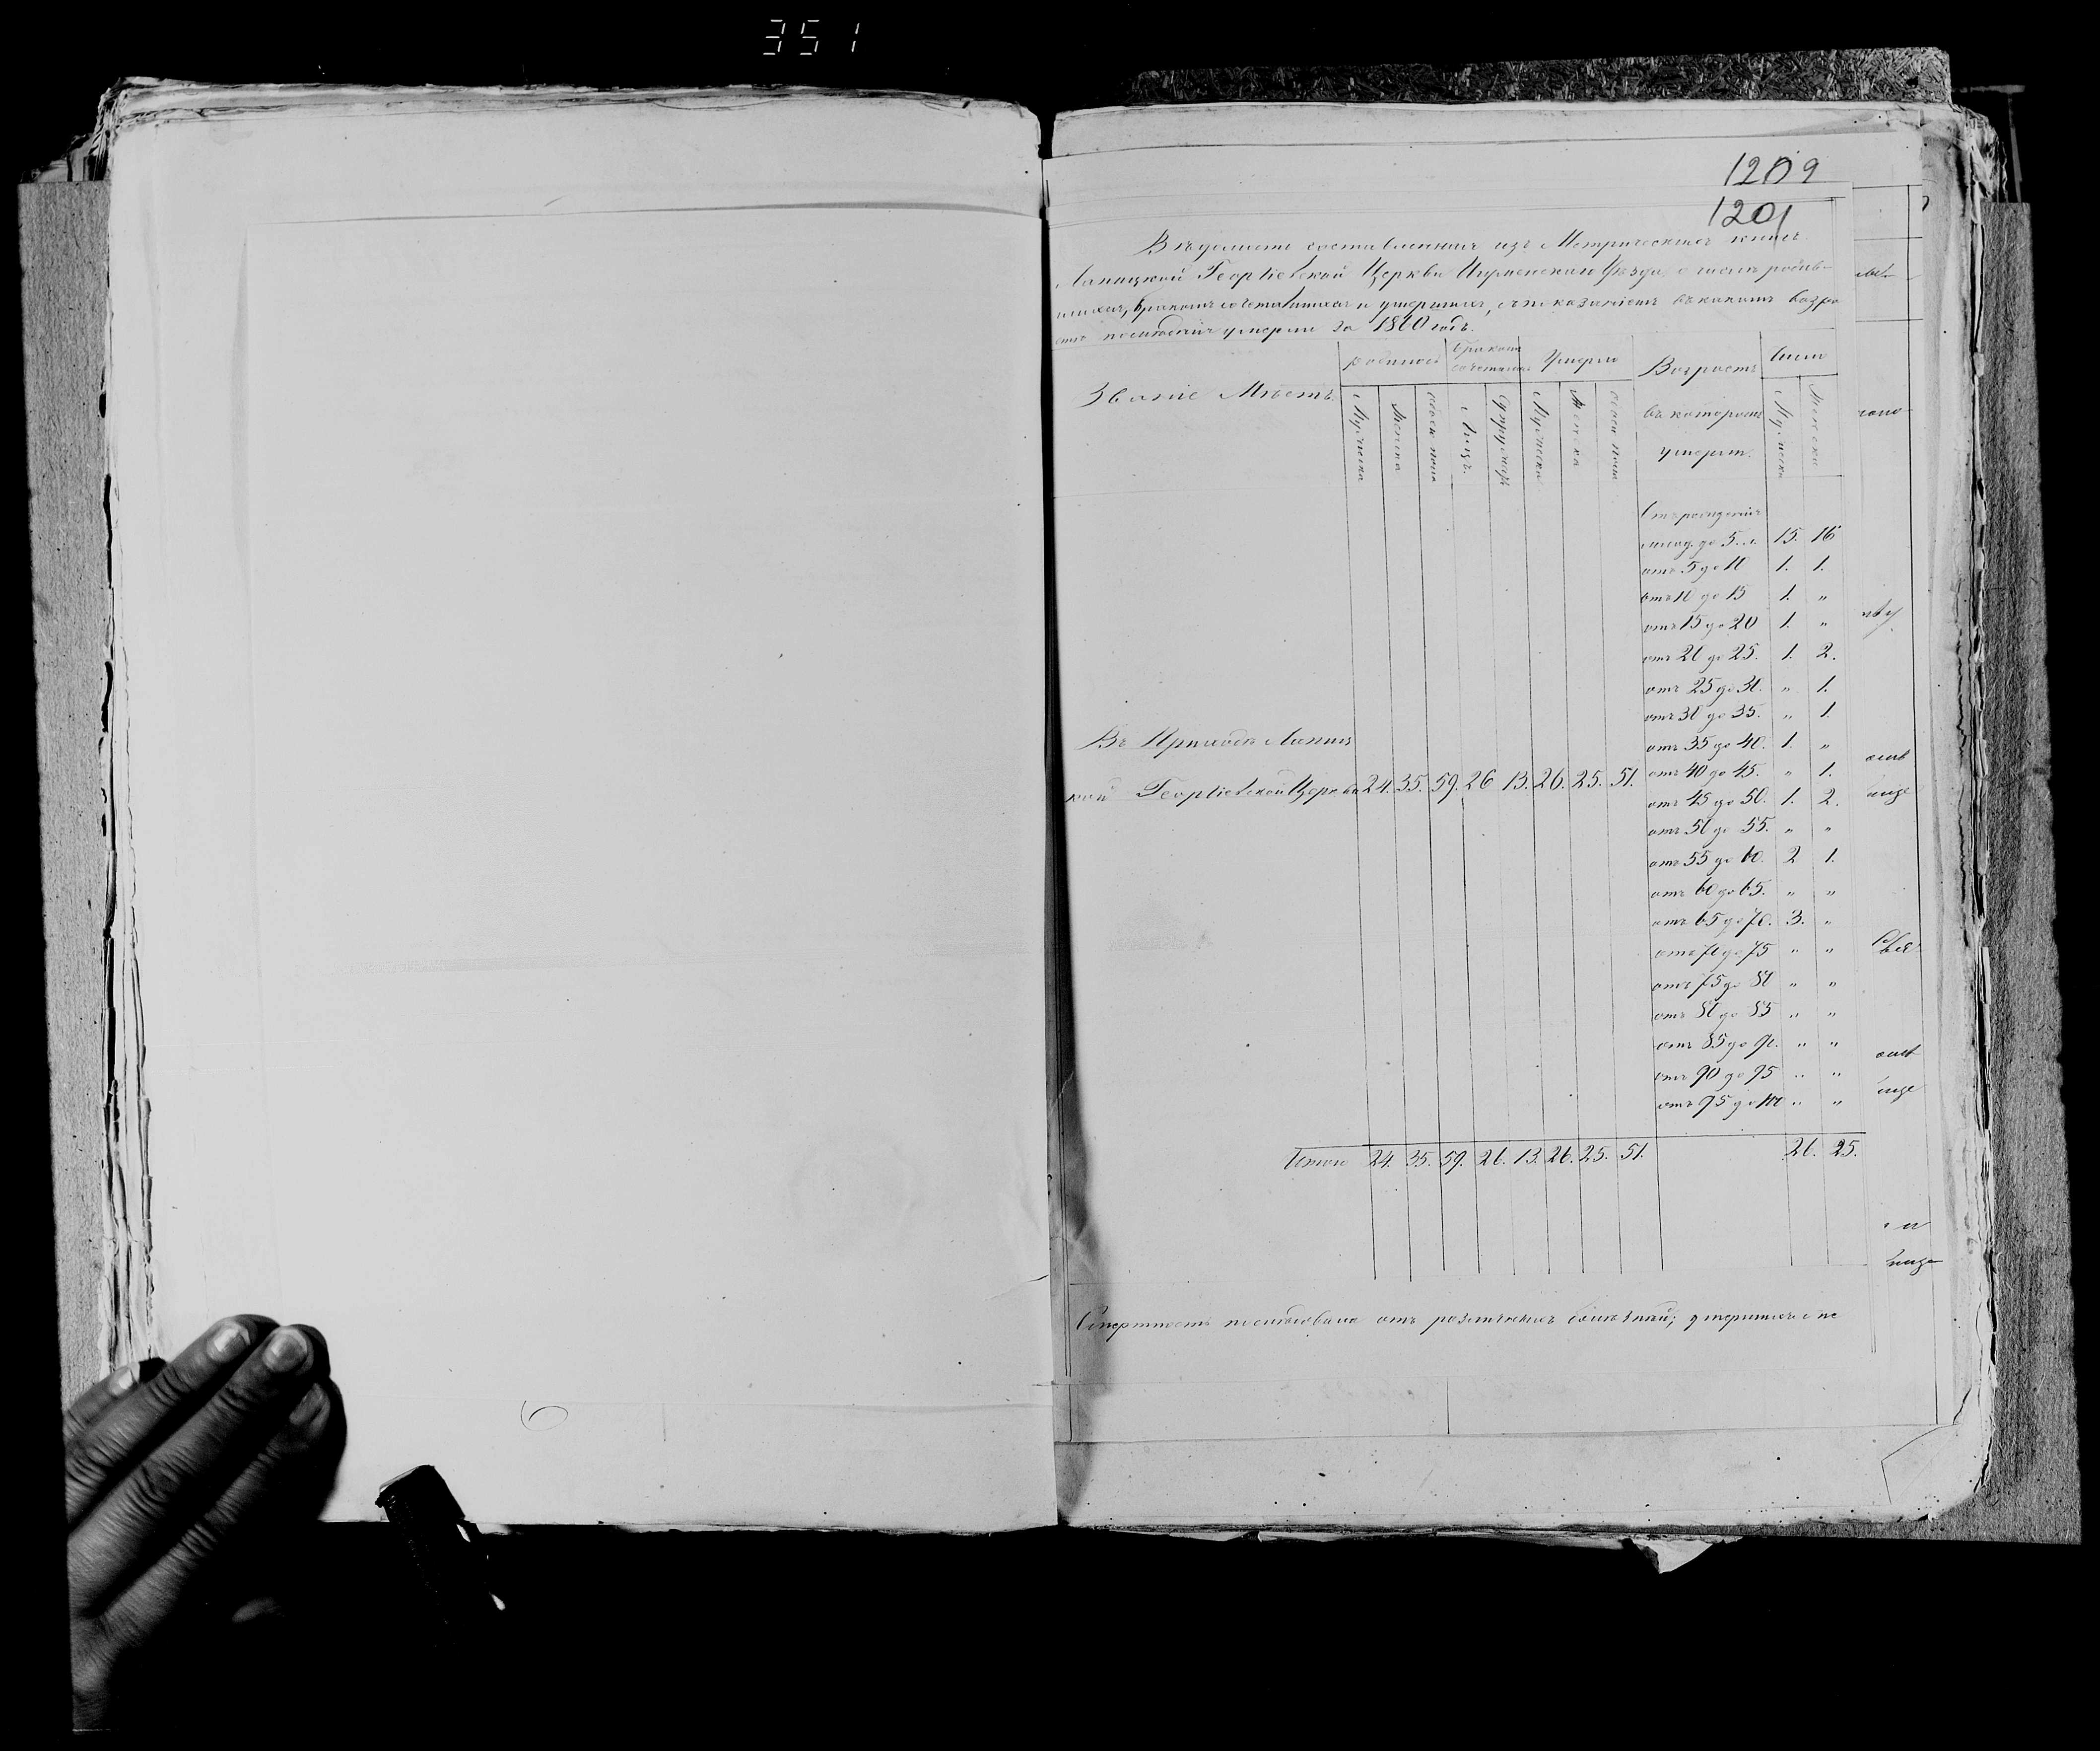 351
1209
1201
Вѣдомость составленная изъ Метрическихъ книгъ
Лапицкой Георгіевской Церкви Игуменскаго Уѣзда, о числѣ родив-
шихся, бракомъ сочетавшихся и умершихъ, съ показаніемъ въ какомъ возра
стѣ послѣдніе умерли за 1860 годъ.
Званіе Мѣстъ.
родилось
бракомъ сочеталось
Умерло
Возрастъ
въ которомъ
умерли.
Число
Мужеска
Женска
обоего пола
Лицъ.
Супружествъ
Мужеска
Женска
обоего пола
Мужеска
Женска
Отъ рожденія
млад. до 5. л. 15. 16
отъ 5 до 10 1. 1.
отъ 10 до 15 1. "
отъ 15 до 20 1. "
отъ 20 до 25. 1. 2.
отъ 25 до 30. " 1.
отъ 30 до 35. " 1.
отъ 35 до 40. 1. "
отъ 40 до 45. " 1.
отъ 45 до 50. 1. 2.
отъ 50 до 55. " "
отъ 55 до 60. 2 1.
отъ 60 до 65. " "
отъ 65 до 70. 3. "
отъ 70 до 75 " "
отъ 75 до 80 " "
отъ 80 до 85 " "
отъ 85 до 90. " "
отъ 90 до 95 " "
отъ 95 до 100 " "
Въ Приходѣ Лапиц
кой Георгіевской Церкви 24. 35. 59. 26 13. 26. 25. 51.
Итого 24. 35. 59. 26. 13. 26. 25. 51. 26. 25.
Смертность послѣдовала отъ различныхъ болѣзней; умершихъ не
6